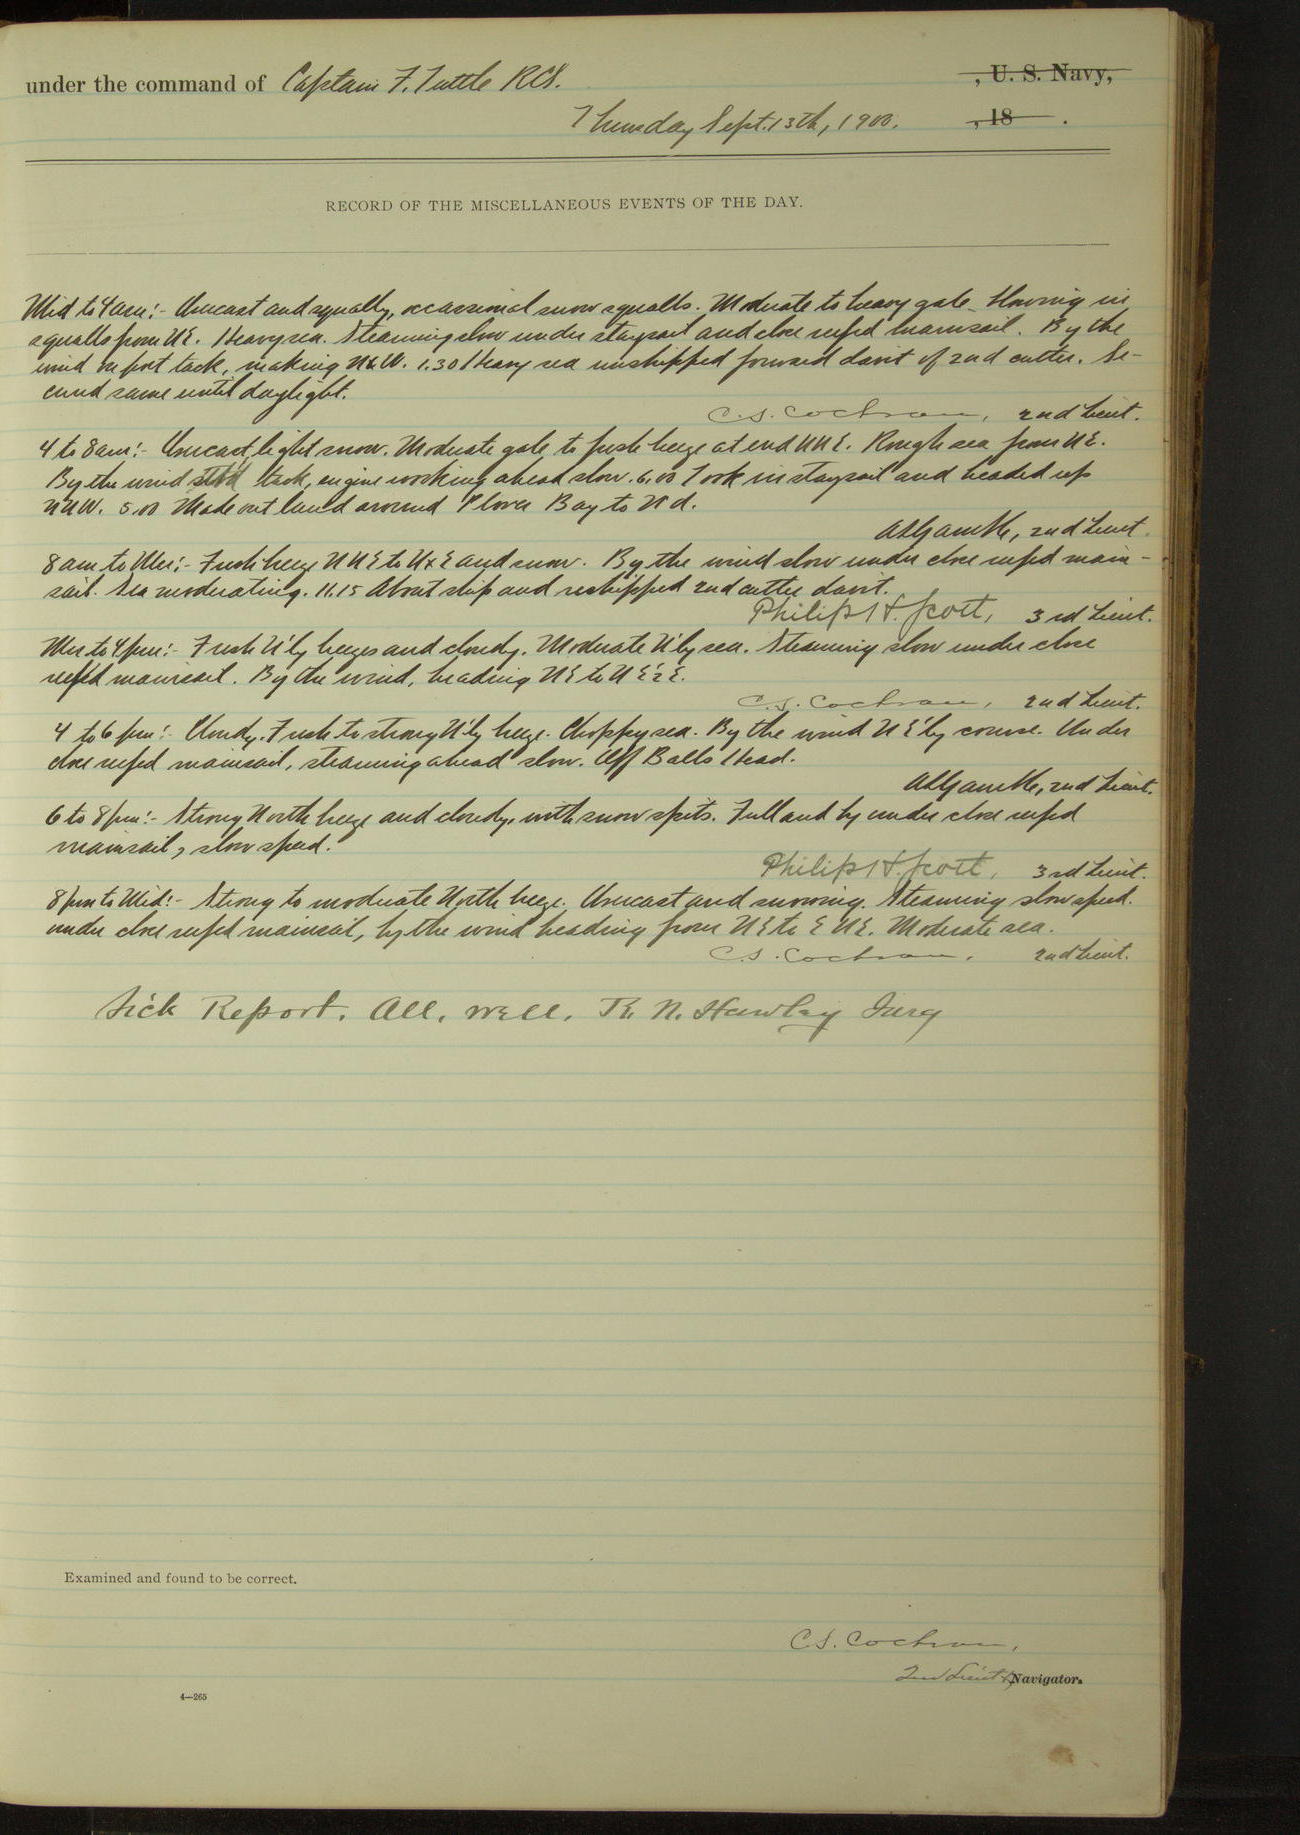 under the command of Captain F. Tuttle RCS. , U. S. Navy,
Thursday Sept. 13th, 1900. , 18 .
RECORD OF THE MISCELLANEOUS EVENTS OF THE DAY.
Mid to 4am:- Overcast and squally, occassional snow squalls. Moderate to heavy gale blowing in
squalls from NE. Heavy sea. Steaming slow under staysail and close reefed mainsail. By the
wind on port tack, making NxW. 1.30 Heavy sea unshipped forward davit of 2nd cutter. Se-
cured same until daylight.
C.S. Cochran, 2nd Lieut.
4 to 8am:- Overcast, light snow. Moderate gale to fresh breeze at end NNE. Rough sea from NE.
By the wind stbd tack, engine working ahead slow. 6.00 Took in staysail and headed up
NNW. 5.00 Made out land around Plover Bay to N'd.
A.L. Gamble, 2nd Lieut.
8am to Mer:- Fresh breeze NNE to NxE and snow. By the wind slow under close reefed main-
sail. Sea moderating. 11.15 About ship and reshipped 2nd cutter davit.
Philip H. Scott, 3rd Lieut.
Mer to 4pm:- Fresh N'ly breezes and cloudy. Moderate N'ly sea. Steaming slow under close
reefed mainsail. By the wind, heading NE to NE½E.
C.S. Cochran, 2nd Lieut.
4 to 6 pm:- Cloudy. Fresh to strong N'ly breeze. Choppy sea. By the wind NE'ly course. Under
close reefed mainsail, steaming ahead slow. Off Balls Head.
A.L. Gamble, 2nd Lieut.
6 to 8pm:- Strong North breeze and cloudy, with snow spits. Full and by under close reefed
mainsail, slow speed.
Philip H. Scott, 3rd Lieut.
8pm to Mid:- Strong to moderate North breeze. Overcast and snowing. Steaming slow speed.
under close reefed mainsail, by the wind heading from NE to ENE. Moderate sea.
C.S. Cochran, 2nd Lieut.
Sick Report. All. well. N. Hawley Surg
Examined and found to be correct.
C.S. Cochran,
2nd Lieut & Navigator.
4—265